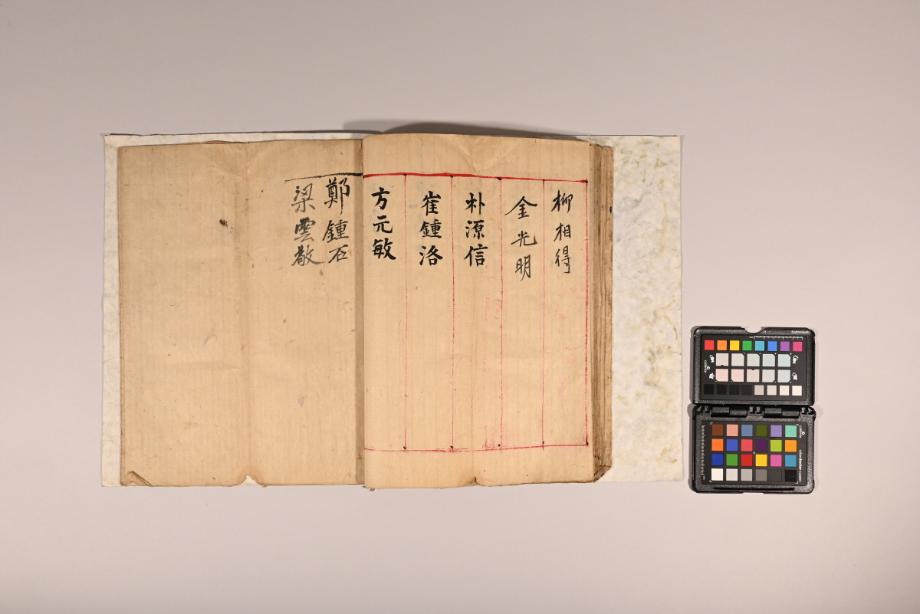 柳相得
金光明
朴源信
崔鍾洛
方元敏
鄭鍾石
梁雲敎